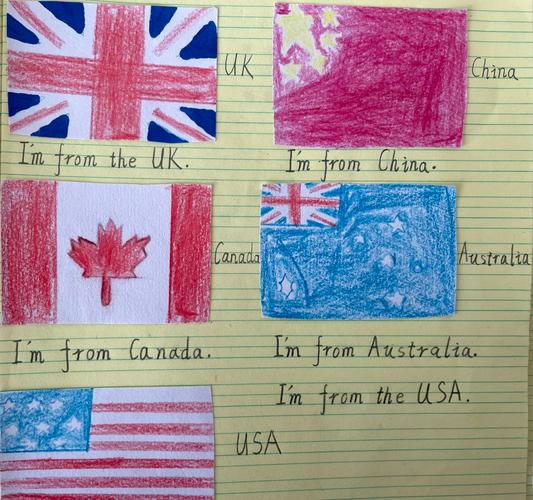 UK
China
I'm from the UK.
I'm from China.
Canada
Australia
I'm from Canada.
I'm from Australia.
I'm from the USA.
USA